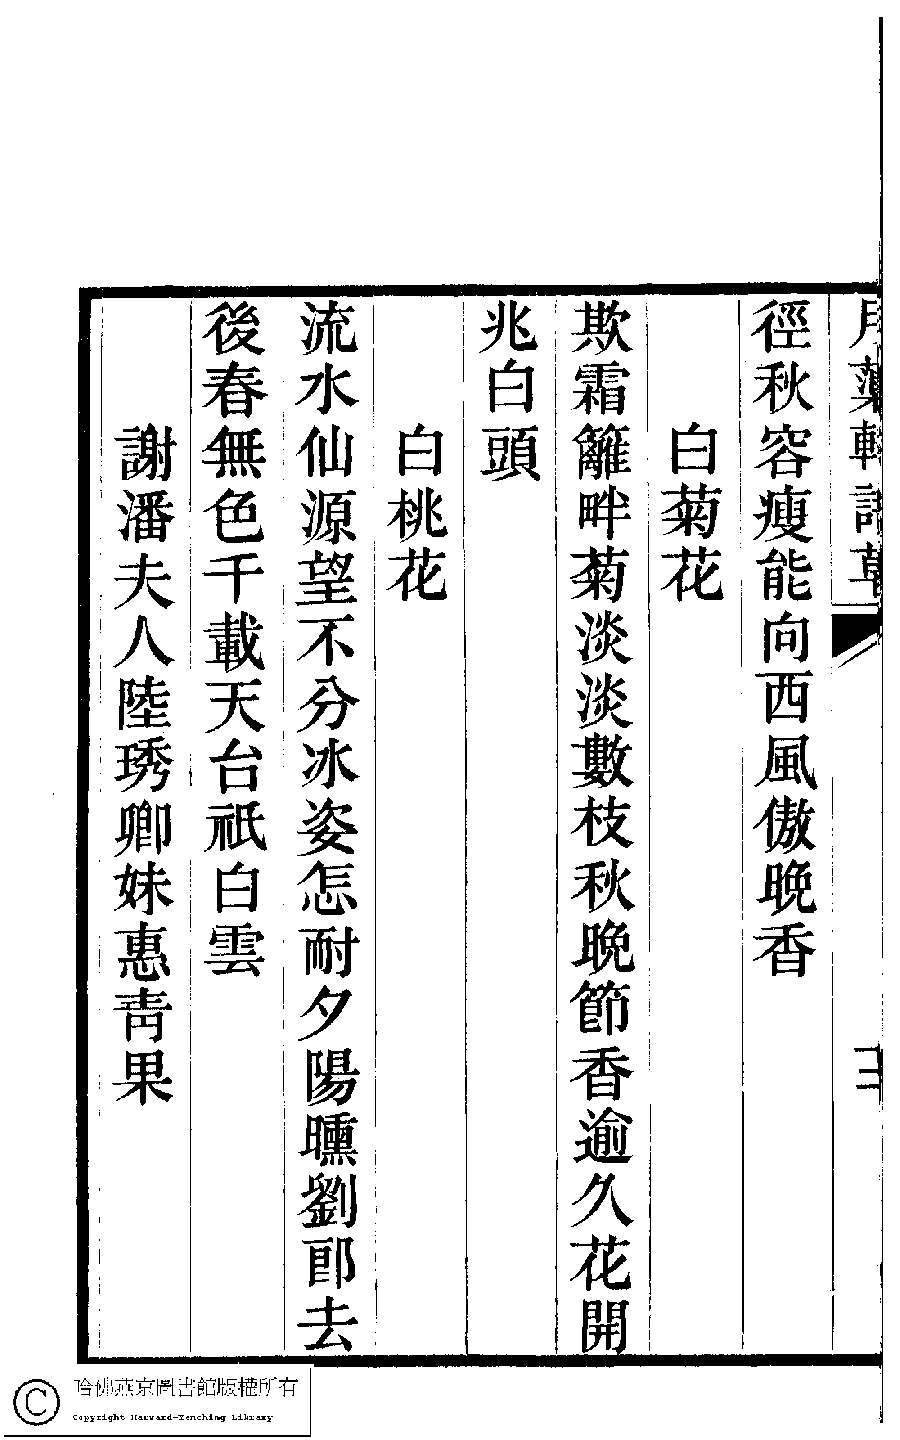 徑秋容瘦能向西風傲晚香
白菊花
欺霜籬畔菊淡淡數枝秋晚節香逾久花開
兆白頭
白桃花
流水仙源望不分冰姿怎耐夕陽曛劉郎去
後春無色千載天台祇白雲
謝潘夫人陸琇卿妹惠青果
哈佛燕京圖書館版權所有
Copyright Harvard-Yenching Library